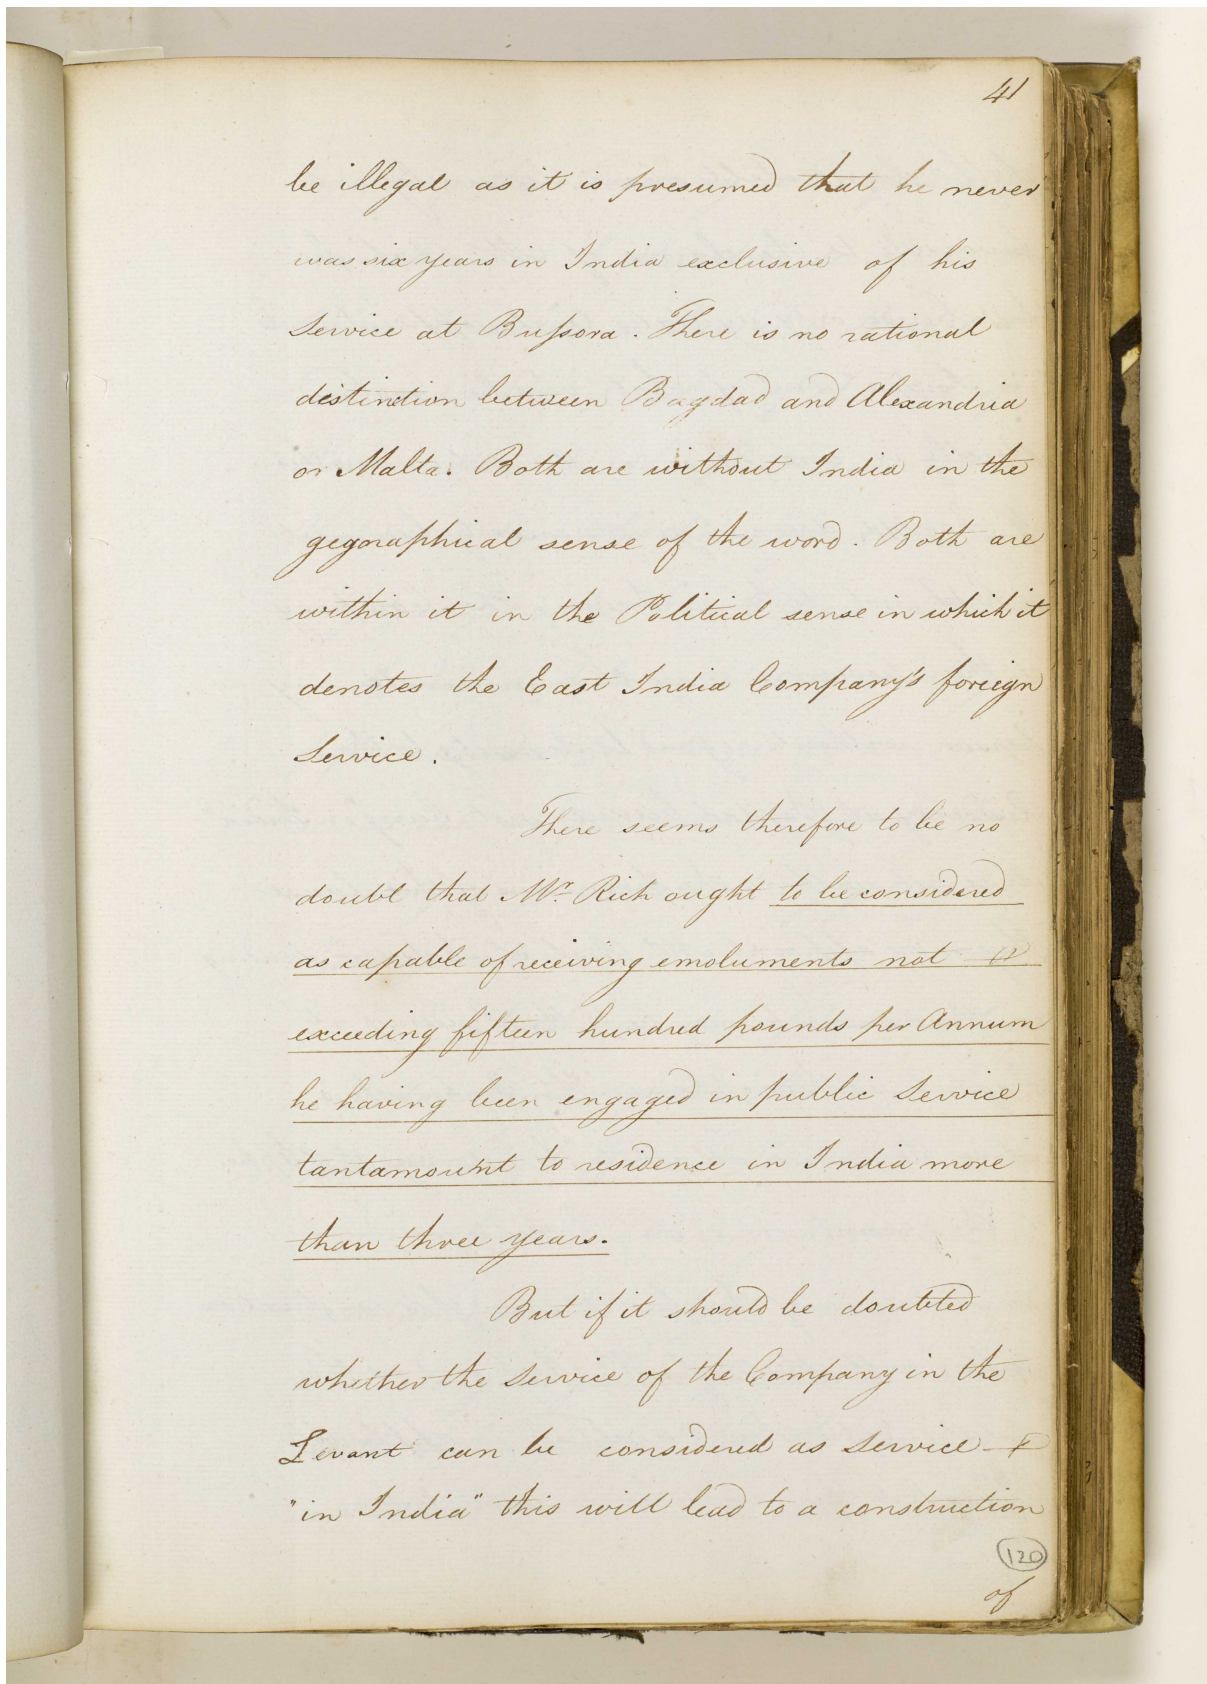 41
be illegal as it is presumed that he never
was six years in India exclusive of his
Service at Bussora. There is no rational
distinction between Bagdad and Alexandria
or Malta. Both are without India in the
gegoraphical sense of the word. Both are
within it in the Political sense in which it
denotes the East India Company's foreign
Service.
There seems therefore to be no
doubt that Mr. Rich ought to be considered
as capable of receiving emoluments not
exceeding fifteen hundred pounds per Annum
he having been engaged in public Service
tantamount to residence in India more
than three years.
But if it should be doubted
whether the Service of the Company in the
Levant can be considered as Service
"in India" this will lead to a construction
120
of